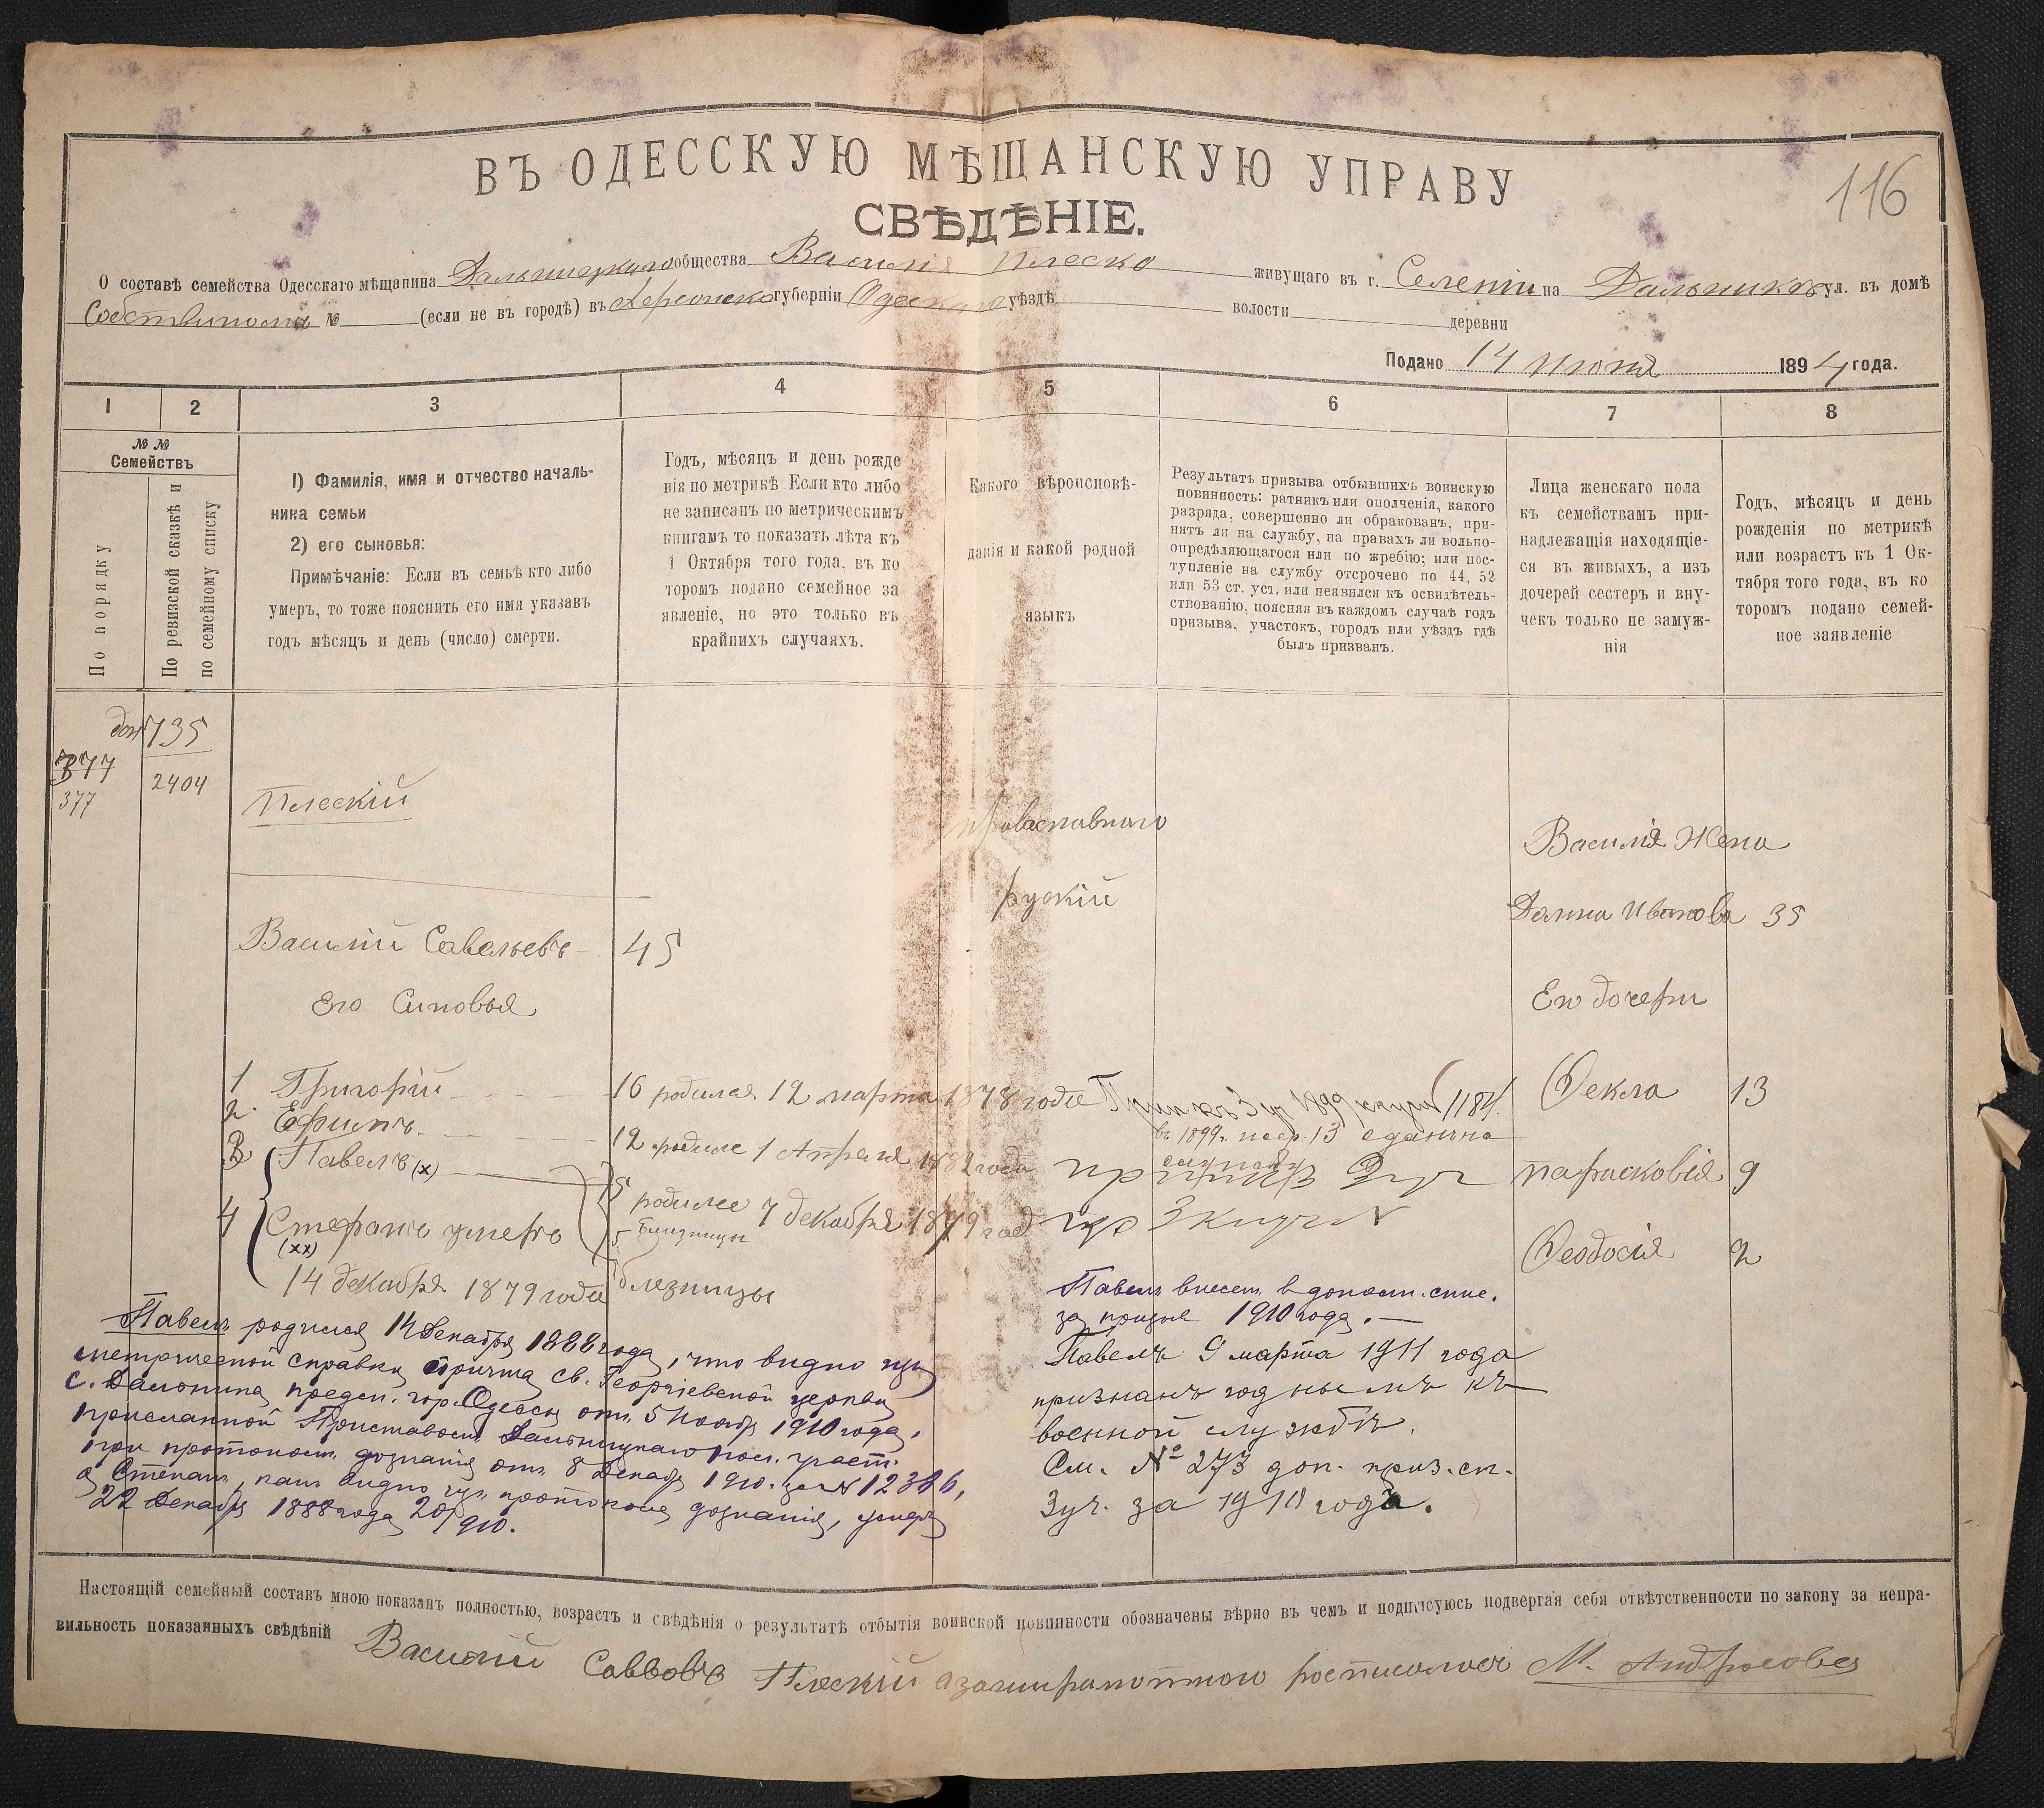 116
ВЪ ОДЕССКУЮ МѢЩАНСКУЮ УПРАВУ
СВѢДѢНІЕ.
О составѣ семейства Одесскаго мѣщанина Дальницкаго общества Василія Плеско живущаго въ г. Селеніи на Дальникъ ул. въ домѣ
Собственомъ № (если не въ городѣ) въ Херсонско губерніи Одескаго уѣздѣ волости деревни
Подано 14 Июня 1894 года.
1 2 3 4 5 6 7 8
№ №
Семействъ
По порядку
По ревизской сказкѣ и
по семейному списку
1) Фамилія, имя и отчество началь-
ника семьи
2) его сыновья:
Примѣчаніе: Если въ семьѣ кто либо
умеръ, то тоже пояснить его имя указавъ
годъ мѣсяцъ и день (число) смерти.
Годъ, мѣсяцъ и день рожде
нія по метрикѣ Если кто либо
не записанъ по метрическимъ
книгамъ то показать лѣта къ
1 Октября того года, въ ко
торомъ подано семейное за
явленіе, но это только въ
крайнихъ случаяхъ.
Какого вѣроисповѣ-
данія и какой родной
языкъ
Результатъ призыва отбывшихъ воинскую
повинность: ратникъ или ополченія, какого
разряда, совершенно ли обракованъ, при-
нятъ ли на службу, на правахъ ли вольно-
опредѣляющагося или по жребію; или пос-
тупленіе на службу отсрочено по 44, 52
или 53 ст. уст, или неявился къ освидѣтель-
ствованію, поясняя въ каждомъ случаѣ годъ
призыва, участокъ, городъ или уѣздъ гдѣ
былъ призванъ.
Лица женскаго пола
къ семействамъ при-
надлежащія находящіе-
ся въ живыхъ, а изъ
дочерей сестеръ и вну-
чекъ только не замуж-
нія
Годъ, мѣсяцъ и день
рожденія по метрикѣ
или возрастъ къ 1 Ок-
тября того года, въ ко
торомъ подано семей-
ное заявленіе
доп 735
377
377 2404
Плескій
православнаго
Василія Жена
рускій
Домна Иванова 35
Василий Савельевъ 45
Его Синовья
Ея дочери
1 Григорій 16 родился 12 марта 1878 года
1184.
Фекла 13
2. Ефимъ 12 родилс 1 Апреля 1882 года
въ 1899г. 13
3 Павелъ (х) 5
параскові́я 9
4 Стефанъ умеръ (хх) 5 родилсе 7 декабря 1879 год
близницы
Феодосия 2
14 декабря 1879 года близницы
Павелъ внесенъ в дополн. спис.
за призыв 1910 года. —
Павелъ 9 марта 1911 года
признанъ годнымъ къ
военной службѣ.
См. № 273 доп. приз. сп.
3 уч. за 1910 годъ.
Павелъ родился 14 Декабря 1888 года, что видно изъ
метрической справки причта св. Георгіевской церкви
с. Дальника, предм. гор. Одессы отъ 5 Ноября 1910 года,
присланной Приставомъ Дальницкаго пол. участ.
при протоколѣ дознанія отъ 8 Декабр 1910. за №12386,
а Степанъ, какъ видно изъ протокола дознанія, умеръ
22 Декабря 1888 года
Настоящій семейный составъ мною показанъ полностью, возрастъ и свѣдѣнія о результатѣ отбытія воинской повинности обозначены вѣрно въ чемъ и подписуюсь подвергая себя отвѣтственности по закону за непра-
вильность показанныхъ свѣдѣній Василий Саввовъ Плескій а зането неграмотного росписался М. Андросовъ